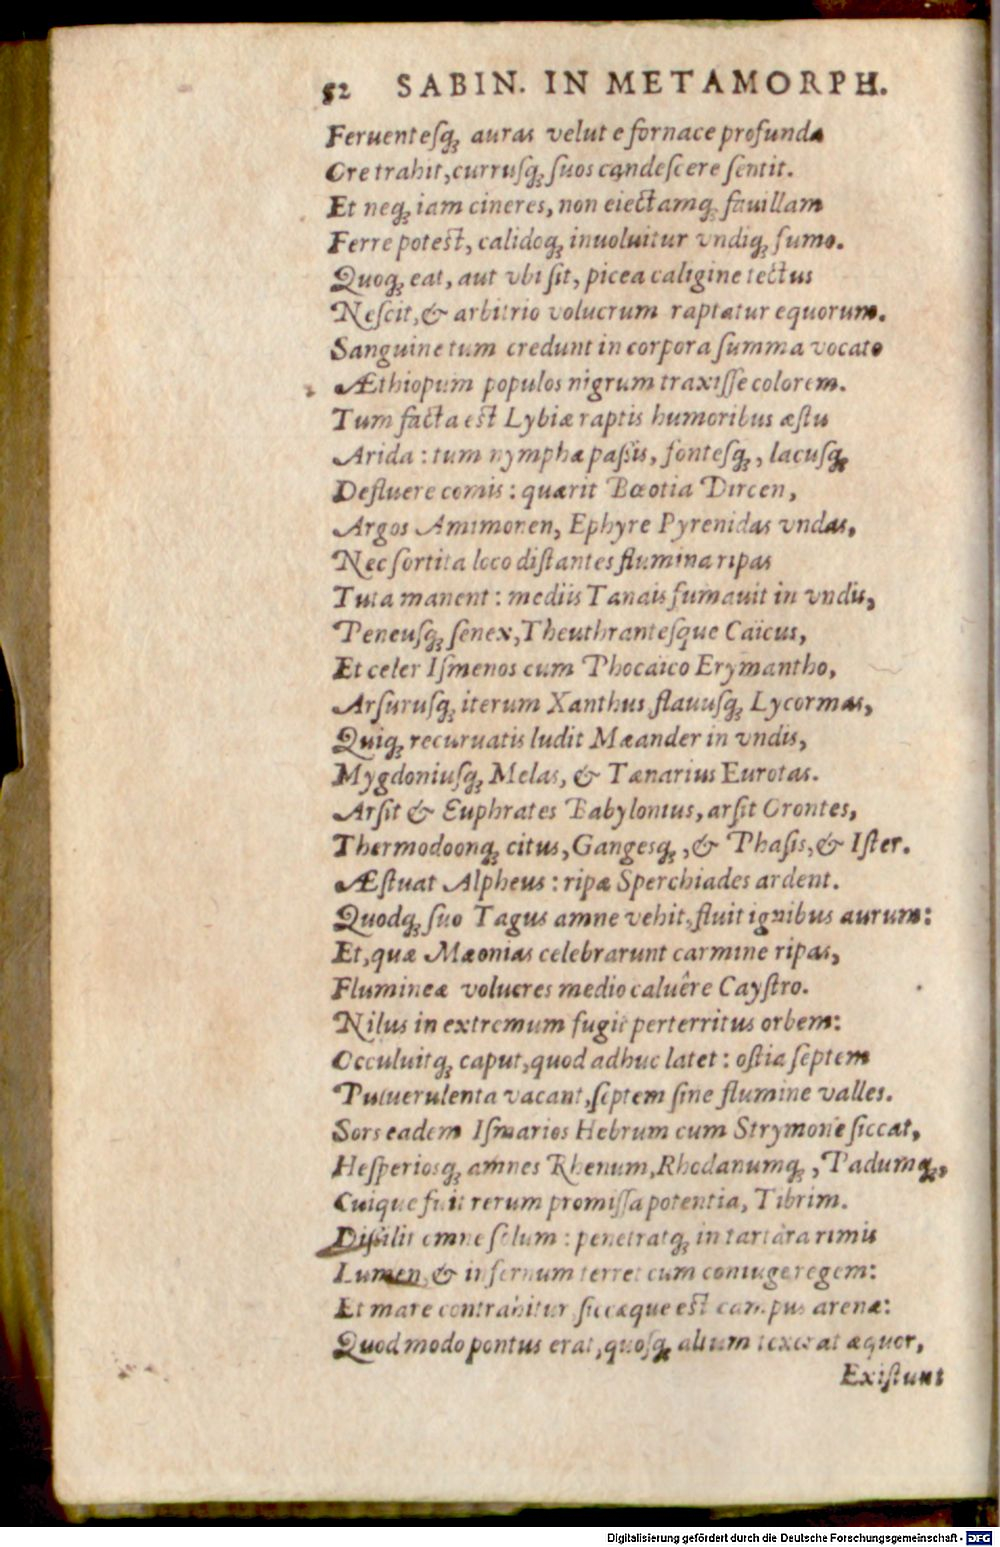 52 SABIN. IN METAMORPH.
Feruentesq́; auras velut e fornace profunda
Ore trahit, currusq́; suos candescere sentit.
Et neq; iam cineres, non eiectamq́; fauillam
Ferre potest, calidoq́; inuoluitur vndiq; fumo.
Quoq́; eat, aut vbi sit, picea caligine tectus
Nescit, & arbitrio volucrum raptatur equorum.
Sanguine tum credunt in corpora summa vocato
Æthiopum populos nigrum traxisse colorem.
Tum facta est Lybiæ raptis humoribus æstu
Arida: tum nymphæ passis, fontesq́;, lacusq́;
Defluere comis: quærit Bœotia Dircen,
Argos Amimonen, Ephyre Pyrenidas vndas,
Nec sortita loco distantes flumina ripas
Tuta manent: mediis Tanais fumauit in vndis,
Peneusq́; senex, Theuthrantesque Caicus,
Et celer Ismenos cum Phocaico Erymantho,
Arsurusq́; iterum Xanthus, flauusq́; Lycormas,
Quiq́; recuruatis ludit Mæander in vndis,
Mygdoniusq́; Melas, & Tænarius Eurotas.
Arsit & Euphrates Babylonius, arsit Orontes,
Thermodoonq́; citus, Gangesq́;, & Phasis, & Ister.
Æstuat Alpheus: ripæ Sperchiades ardent.
Quodq́; suo Tagus amne vehit, fluit ignibus aurum:
Et, quæ Mæonias celebrarunt carmine ripas,
Flumineæ volucres medio caluêre Caystro.
Nilus in extremum fugit perterritus orbem:
Occuluitq́; caput, quod adhuc latet: ostia septem
Puluerulenta vacant, septem sine flumine valles.
Sors eadem Ismarios Hebrum cum Strymone siccat,
Hesperiosq́; amnes Rhenum, Rhodanumq́;, Padumq́;,
Cuique fuit rerum promissa potentia, Tibrim.
Dissilit omne solum: penetratq́; in tartara rimis
Lumen, & infernum terret cum coniuge regem:
Et mare contrahitur, siccæque est campus arenæ:
Quod modo pontus erat, quosq́; altum texerat æquor,
Existunt
Digitalisierung gefördert durch die Deutsche Forschungsgemeinschaft - DFG